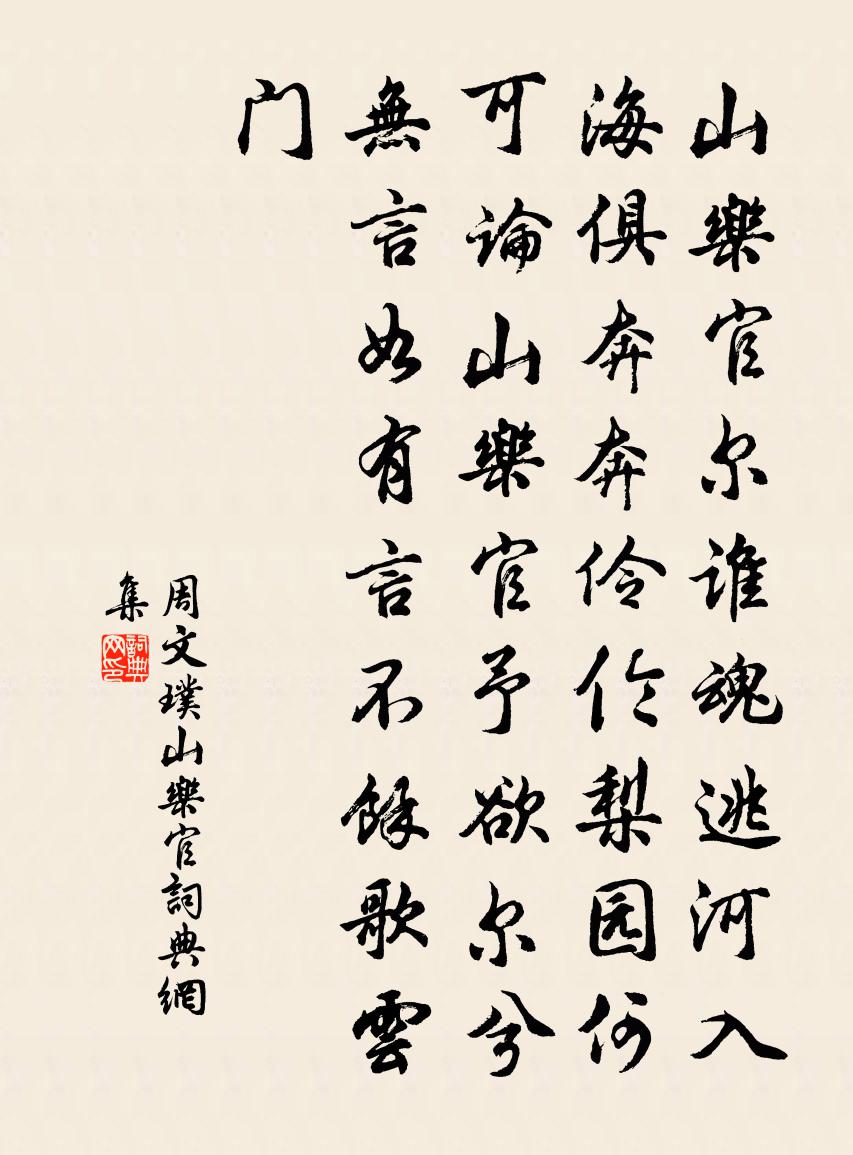 山樂官尔谁魂逃河入
海俱奔奔伶伶梨园何
可论山樂官予欲尔兮
無言如有言不餘歌雲
门
周文璞山樂官詞典網
集
詞典
网印